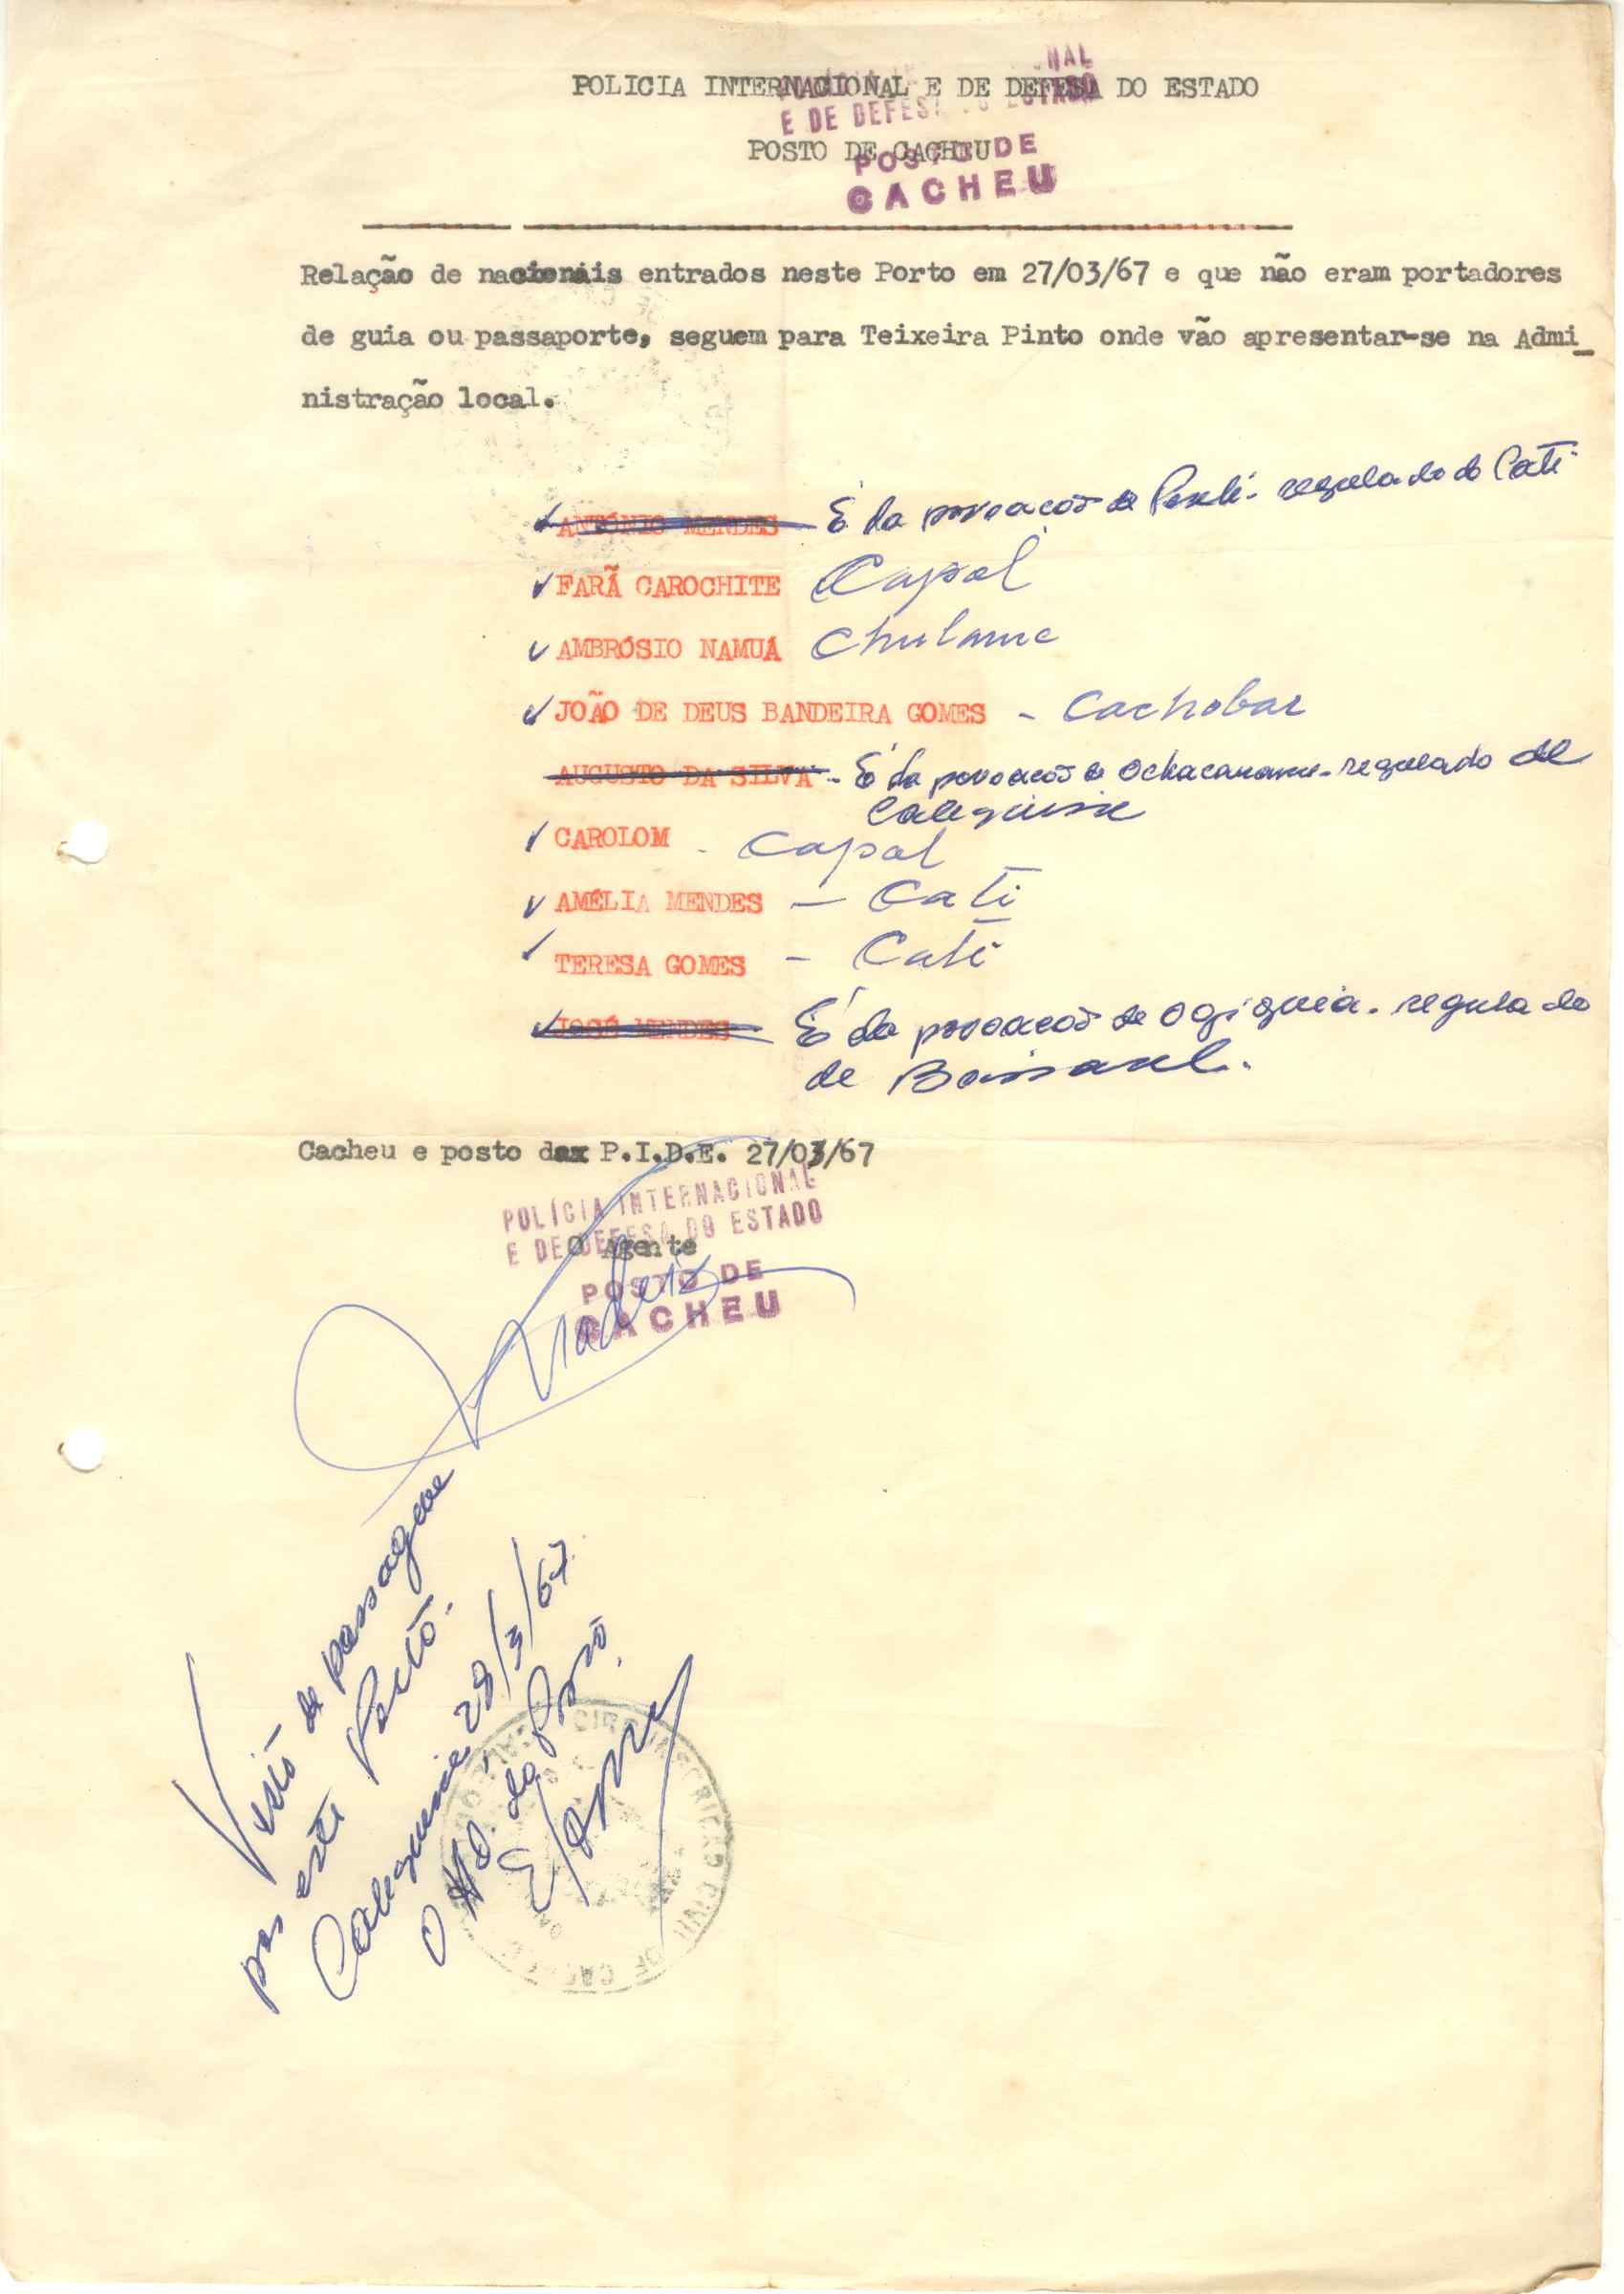 POLICIA INTERNACIONAL E DE DEFESA DO ESTADO
NAL
E DE DEFESA DO ESTADO
POSTO DE CACHEU
POSTO DE
CACHEU
Relação de nacionais entrados neste Porto em 27/03/67 e que não eram portadores
de guia ou passaporte, seguem para Teixeira Pinto onde vão apresentar-se na Admi_
nistração local.
ANTÓNIO MENDES É da povoação de regulado do Cati
FARÃ CAROCHITE Capol
AMBRÓSIO NAMUÁ Chulame
JOÃO DE DEUS BANDEIRA GOMES - Cachobar
AUGUSTO DA SILVA - É da povoação de regulado de
Calequisse
CAROLOM - Capol
AMÉLIA MENDES - Cati
TERESA GOMES - Cati
JOSÉ MENDES É da povoação de regulado
de
Cacheu e posto da P.I.D.E. 27/03/67
POLÍCIA INTERNACIONAL
E DE DEFESA DO ESTADO
O Agente
POSTO DE
CACHEU
Visto de passagem
por este Posto.
Calequisse 28/3/67.
O do Posto
CIRCUNSCRIÇÃO CIVIL DE CACHEU